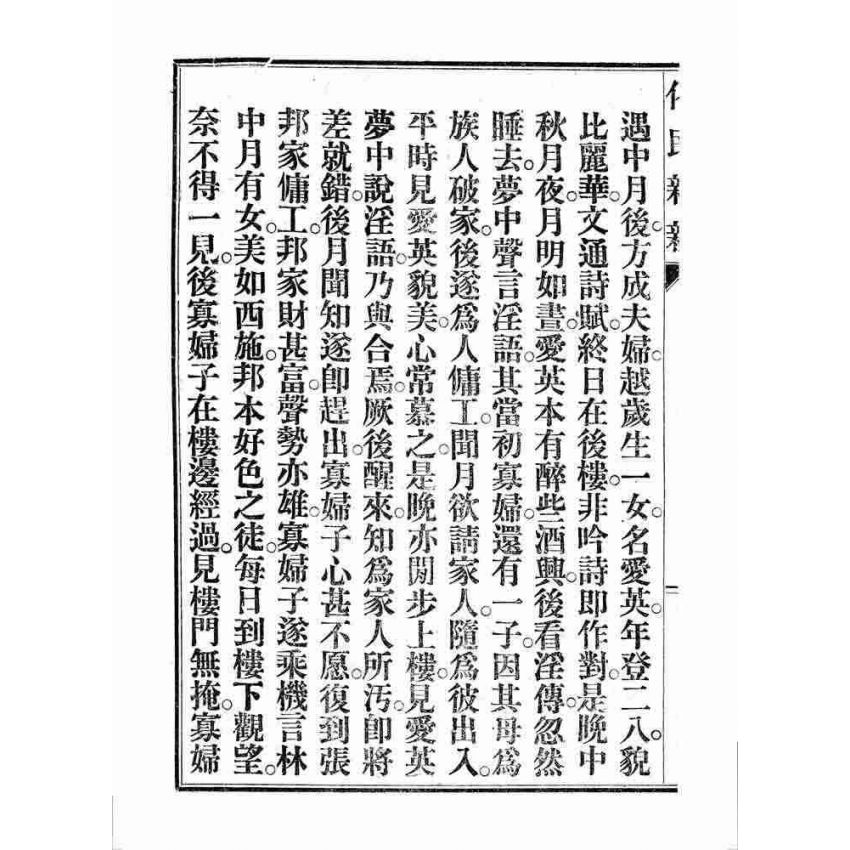 遇中月後。方成夫婦。越歲生一女。名愛英。年登二八。貌
比麗華。文通詩賦。終日在後樓。非吟詩即作對。是晚中
秋月夜。月明如晝。愛英本有醉些酒興。後看淫傳。忽然
睡去。夢中聲言淫語。其當初寡婦。還有一子。因其母為
族人破家。後遂爲人傭工。聞月欲請家人。隨爲彼出入。
平時見愛英貌美。心常慕之。是晚亦閒步上樓。見愛英
夢中說淫語。乃與合焉。厥後醒來。知爲家人所汚。卽將
差就錯。後月聞知遂卽趕出。寡婦子心甚不愿。復到張
邦家傭工。邦家財甚富。聲勢亦雄。寡婦子遂乘機言林
中月有女。美如西施。邦本好色之徒。每日到樓下觀望。
奈不得一見。後寡婦子在樓邊經過。見樓門無掩。寡婦